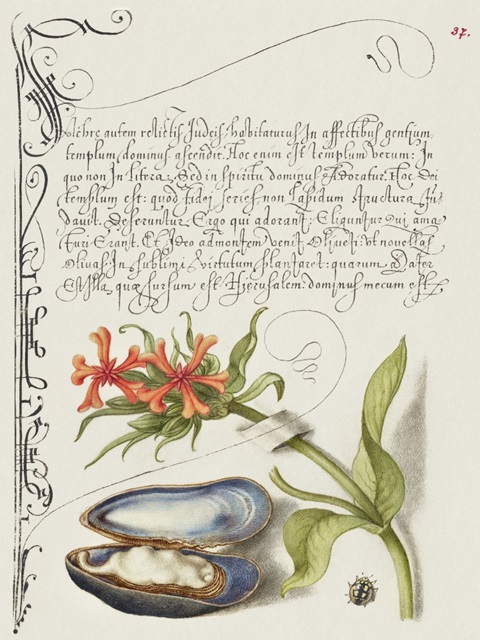 37.
autem relictis Judeis habitaturus In affectibus gentium
templum dominus ascendit. Hoc enim est templum verum: In
quo non In litera, Sed in spiritu dominus Adoratur. Hoc Dei
templum est: quod fidei series non Lapidum structura fu-
dauit. Deseruntur Ergo qui adorant: Eliguntur Qui ama-
turi Erant. Et Ideo ad montem venit Oliueti: vt nouellas
Oliuas In sublimi virtutum plantaret: quarum Mater
Est Illa, quæ sursum est Hierusalem: dominus mecum est